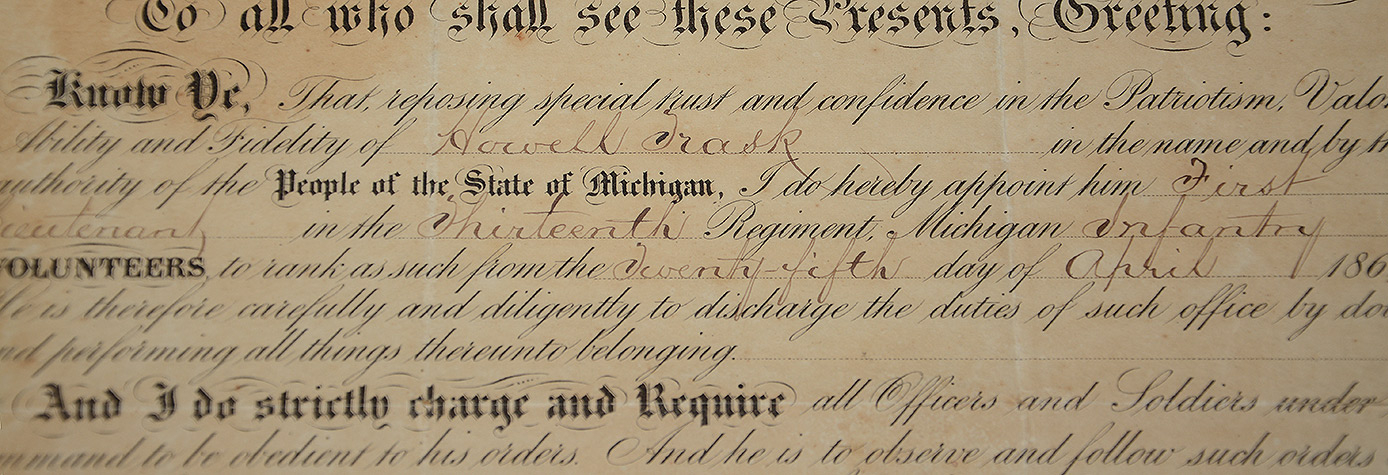 To all who shall see these Presents, Greeting:
Know Ye, That, reposing special trust and confidence in the Patriotism, Valo
Ability and Fidelity of Howell Trask in the name and by th
authority of the People of the State of Michigan, I do hereby appoint him First
ieutenant in the Thirteenth Regiment, Michigan Infantry
VOLUNTEERS, to rank as such from the Twenty-fifth day of April 186
He is therefore carefully and diligently to discharge the duties of such office by do
nd performing all things thereunto belonging.
And I do strictly charge and Require all Officers and Soldiers under
mmand to be obedient to his orders. And he is to observe and follow such orders